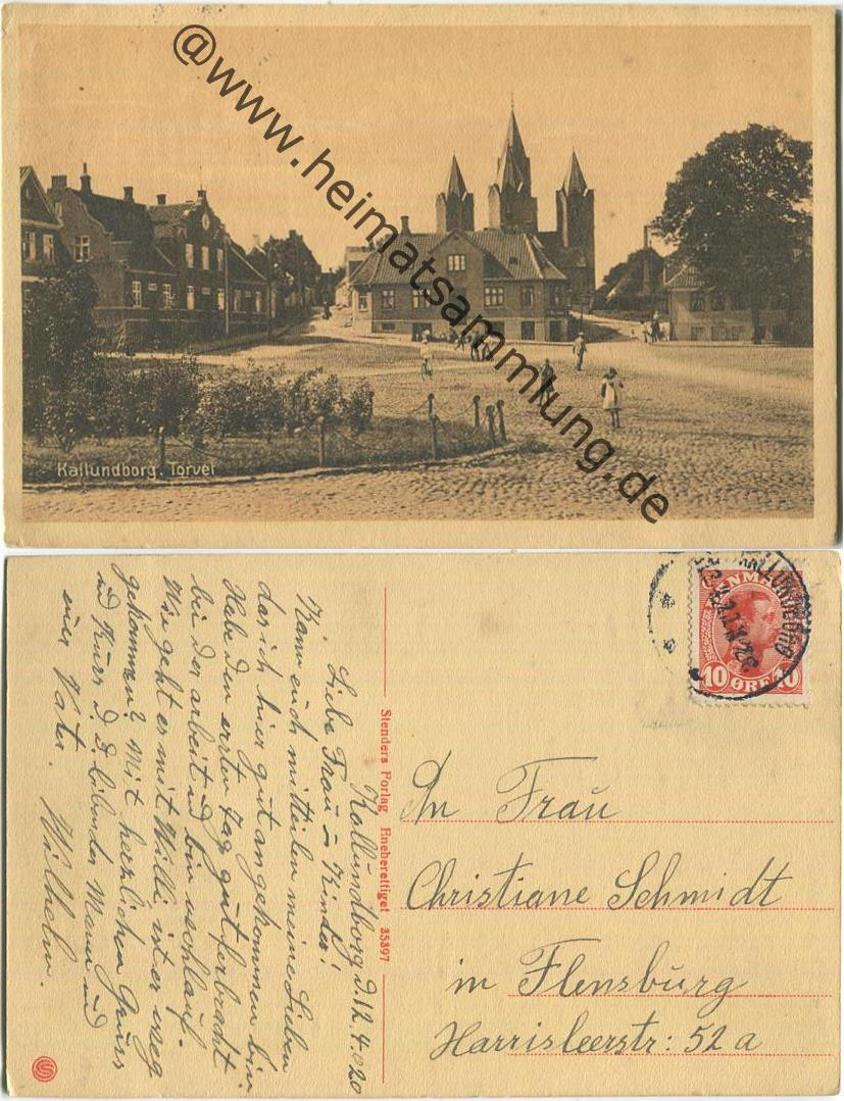 @www.heimatsammlung.de
Kallundborg. Torvet
Kallundborg d. 12.4.020
Liebe Frau u Kinder!
Kann euch mitteilen meine Lieben
das ich hier gut angekommen bin
Habe den ersten Tag gut ferbracht
bei der arbeit und bin
Wie geht es mit Willi ist er weg
gekommen? Mit herzlichen Gruss
und Kuss d. D. libender Mann und
euer Vater. Wilhelm.
Stenders Forlag Eneberettiget 35397
DANMARK
10 ØRE 10
KALLUNDBORG
An Frau
Christiane Schmidt
in Flensburg
Harrisleerstr: 52 a